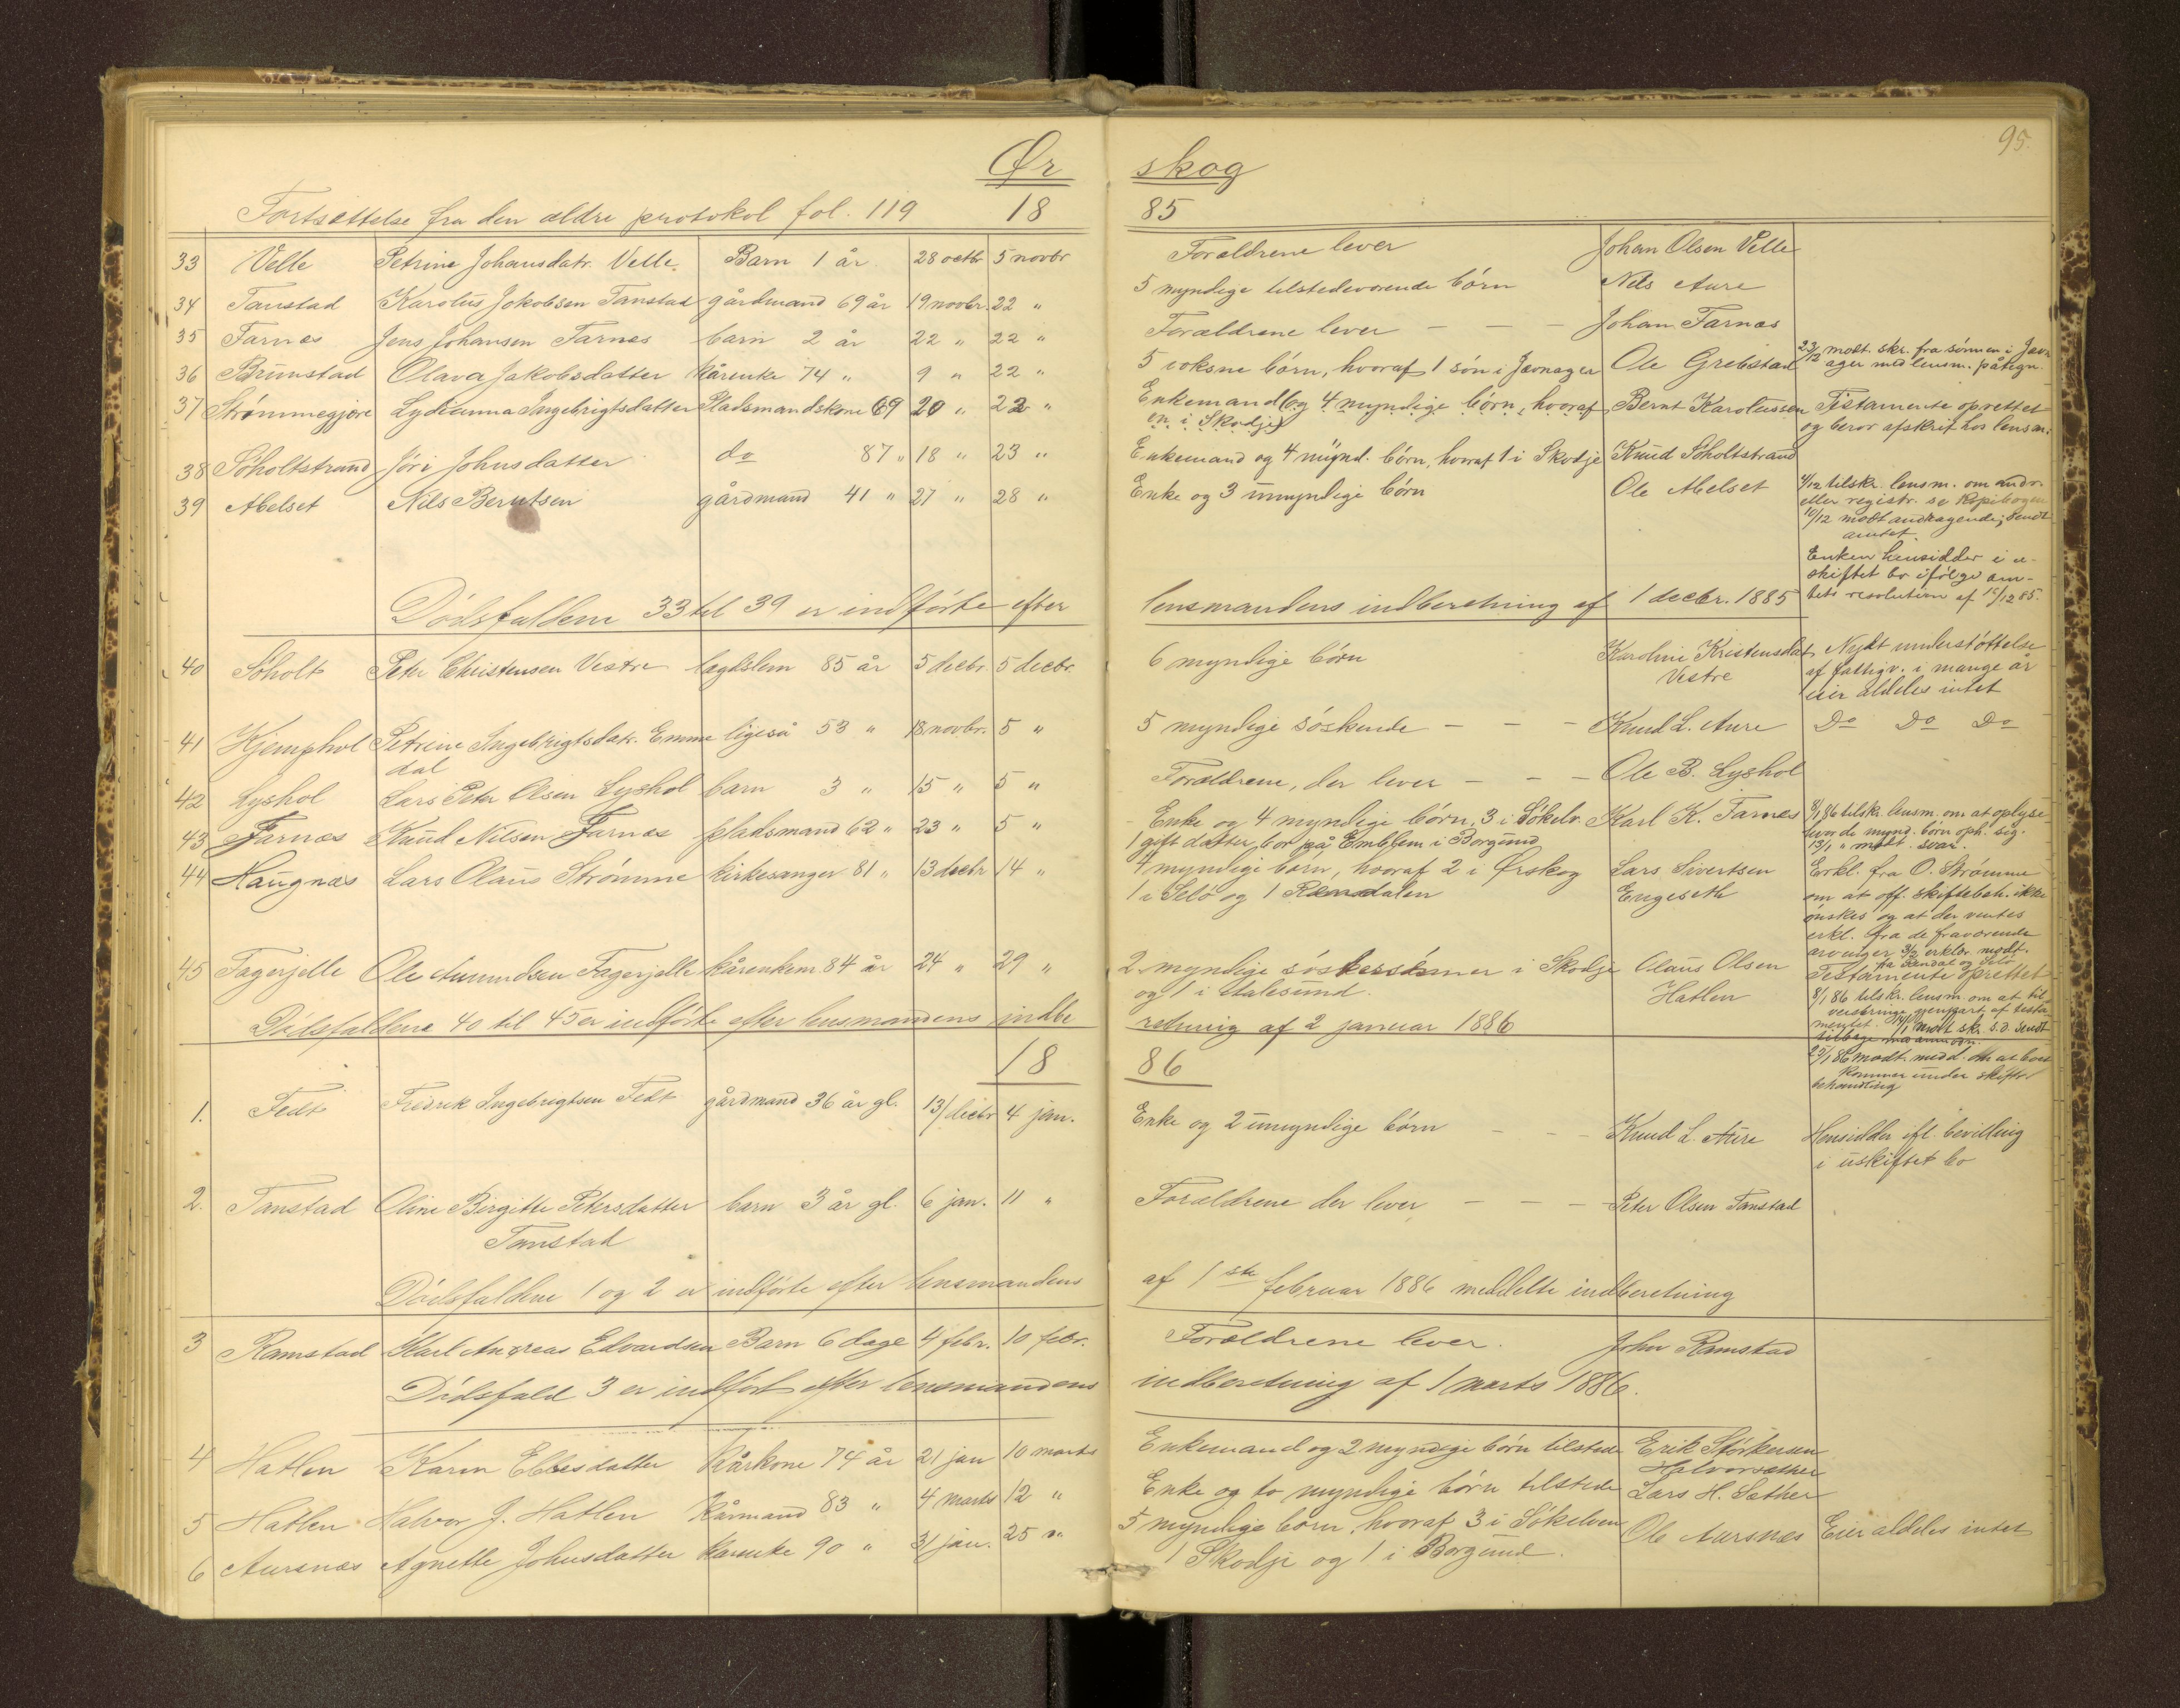 95.
Ørskog
Fortsættelse fra den ældre protokol fol. 119 1885
33 Velle Petrine Johansdatr. Velle. Barn 1 år 28 octbr 5 novbr Forældrene lever Johan Olsen Velle
34 Tanstad Karolus Jokobsen Tanstad gårdmand 69 år 19 novbr. 22 " 5 myndige tilstedeværende børn Nils Aure
35 Farnes Jens Johansen Farnes barn 2 år 22 " 22 " Forældrene lever – – – Johan Farnæs
36 Brunstad Olava Jakobsdatter kårenke 74 " 9 " 22 " 5 voksne børn, hvoraf 1 søn i Jævnager Ole Grebstad 23/12 modt. skr. fra sønnen i Jævn
ager med lensm. påtegn.
37 Strømmegjære Lydianna Ingebrigtsdatter Pladsmandskone 69 20 " 22 " Enkemand (og 4 myndige børn, hvoraf Bernt Karolussen Testamente oprettet
en i Skodje) og beror afskrift hos lensm.
38 Søholtstrand Jóri Johnsdatter do 87 " 18 " 23 " Enkemand og 4 mynd. børn, hvoraf 1 i Skodje Knud Søholtstrand
39 Abelset Nils Berntsen gårdmand 41 " 27 " 28 " Enke og 3 umyndige børn Ole Abelset 4/12 tilskr. lensm. om andr.
eller registr. se Kopibogen
10/12 modt andragende; sendt
amtet.
Enken hensidder i u-
skiftet bo ifølge am-
tets resolution af 15/12 85.
Dødsfaldene 33 til 39 er indførte efter lensmandens indberetning af 1 decbr. 1885
40 Søholt Peter Christensen Vestre lægdslem 85 år 5 decbr. 5 decbr. 6 myndige børn Karoline Kristensdat. Nydt understøttelse
Vestre af fattigv. i mange år
eier aldeles intet
41 Kjemphol Petrine Ingebrigtsdatr. Emme ligeså 53 " 18 novbr. 5 " 5 myndige søskende – – – Knud L. Aure Do Do Do
dal
42 Lyshol Lars Peter Olsen Lyshol barn 3 " 15 " 5 " Forældrene, der lever – – – Ole B. Lyshol
43 Farnæs Knud Nilsen Farnæs pladsmand 62 " 23 " 5 " Enke og 4 myndige børn, 3 i Søkelv. Karl K. Farnæs 8/1 86 tilskr. lensm. om at oplyse
1 gift datter bor på Emblem i Borgund hvor de mynd. børn oph. sig.
13/1 " modt. svar.
44 Haugnæs Lars Olaus Strømme kirkesanger 81 " 13 decbr 14 " 4 myndige børn, hvoraf 2 i Ørskog Lars Sivertsen Erkl. fra O. Strømme
1 i Selø og 1 Romsdalen Engeseth om at off. skiftebeh. ikke
ønskes og at der ventes
erkl. fra de fraværende
arvinger 3/2 erklær. modt.
45 Fagerjelle Ole Amundsen Fagerjelle kårenkem. 84 år 24 " 29 " 2 myndige søskersønner i Skodje Olaus Olsen Testamente oprettet
og 1 i Aalesund. Hatlen 8/1 86 tilskr. lensm. om at til
veiebringe gjenpart af testa
mentet. 14/1 modt skr. s.d. sendt
tilbage
Dødsfaldene 40 til 45 er indførte efter lensmandens indberetning af 2 januar 1886
1886
25/1 86 modt. medd. om at boet
kommer under skifte
behandling
1. Fedt Fredrik Ingebrigtsen Fedt gårdmand 36 år gl. 13/decbr 4 jan. Enke og 2 umyndige børn – – – Knud L. Aure Hensidder ifl. bevilling
i uskiftet bo
2. Tanstad Oline Birgitte Petersdatter barn 3 år gl. 6 jan. 11 " Forældrene der lever – – – Peter Olsen Tanstad
Tanstad
Dødsfaldene 1 og 2 er indførte efter lensmandens af 1ste februar 1886 meddelte indberetning
3 Ramstad Karl Andreas Edvardsen Barn 6 dage 4 febr. 10 febr. Forældrene lever. John Ramstad
Dødsfald 3 er indført efter lensmandens indberetning af 1 marts 1886.
4 Hatlen Karen Ellesdatter Kårkone 74 år 21 jan 10 marts Enkemand og 2 myndige børn tilstede Erik Størkersen
Halvorsæther
5 Hatlen Halvor J. Hatlen kårmand 83 " 4 marts 12 " Enke og to myndige børn tilstede Lars H. Sæther
6 Aursnæs Agnette Johnsdatter kårenke 90 " 31 jan. 25 " 5 myndige børn, hvoraf 3 i Søkelven Ole Aursnæs Eier aldeles intet
1 Skodje og 1 i Borgund.